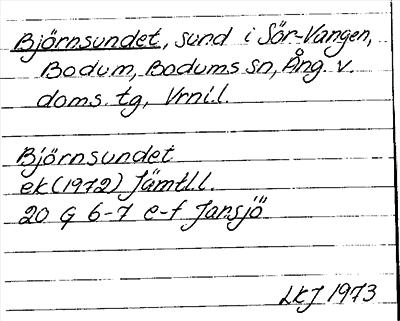 Björnsundet, sund i Sör-Vangen,
Bodum, Bodums sn, Ång. v.
doms. tg, Vrnl.l.
Björnsundet
ek (1972) Jämtl.l.
20 G 6-7 e-f Jansjö
LKJ 1973